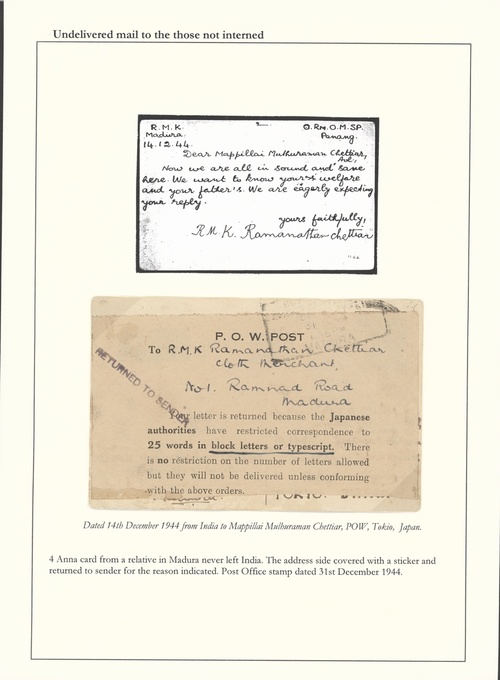 Undelivered mail to the those not interned
R.M.K. O.Rm.O.M.SP.
Madura. Penang.
14.12.44.
Dear Mappillai Muthuraman Chettiar,
Now we are all in sound and sane
here. We want to know your welfare
and your father's. We are eagerly expecting
your reply.
yours faithfully,
R.M.K. Ramanathan chettiar
P. O. W. POST
To R.M.K Ramanathan Chettiar
Cloth Merchant,
No 1. Ramnad Road
Madura
RETURNED TO SENDER
Your letter is returned because the Japanese
authorities have restricted correspondence to
25 words in block letters or typescript. There
is no restriction on the number of letters allowed
but they will not be delivered unless conforming
with the above orders.
Dated 14th December 1944 from India to Mappillai Muthuraman Chettiar, POW, Tokio, Japan.
4 Anna card from a relative in Madura never left India. The address side covered with a sticker and
returned to sender for the reason indicated. Post Office stamp dated 31st December 1944.